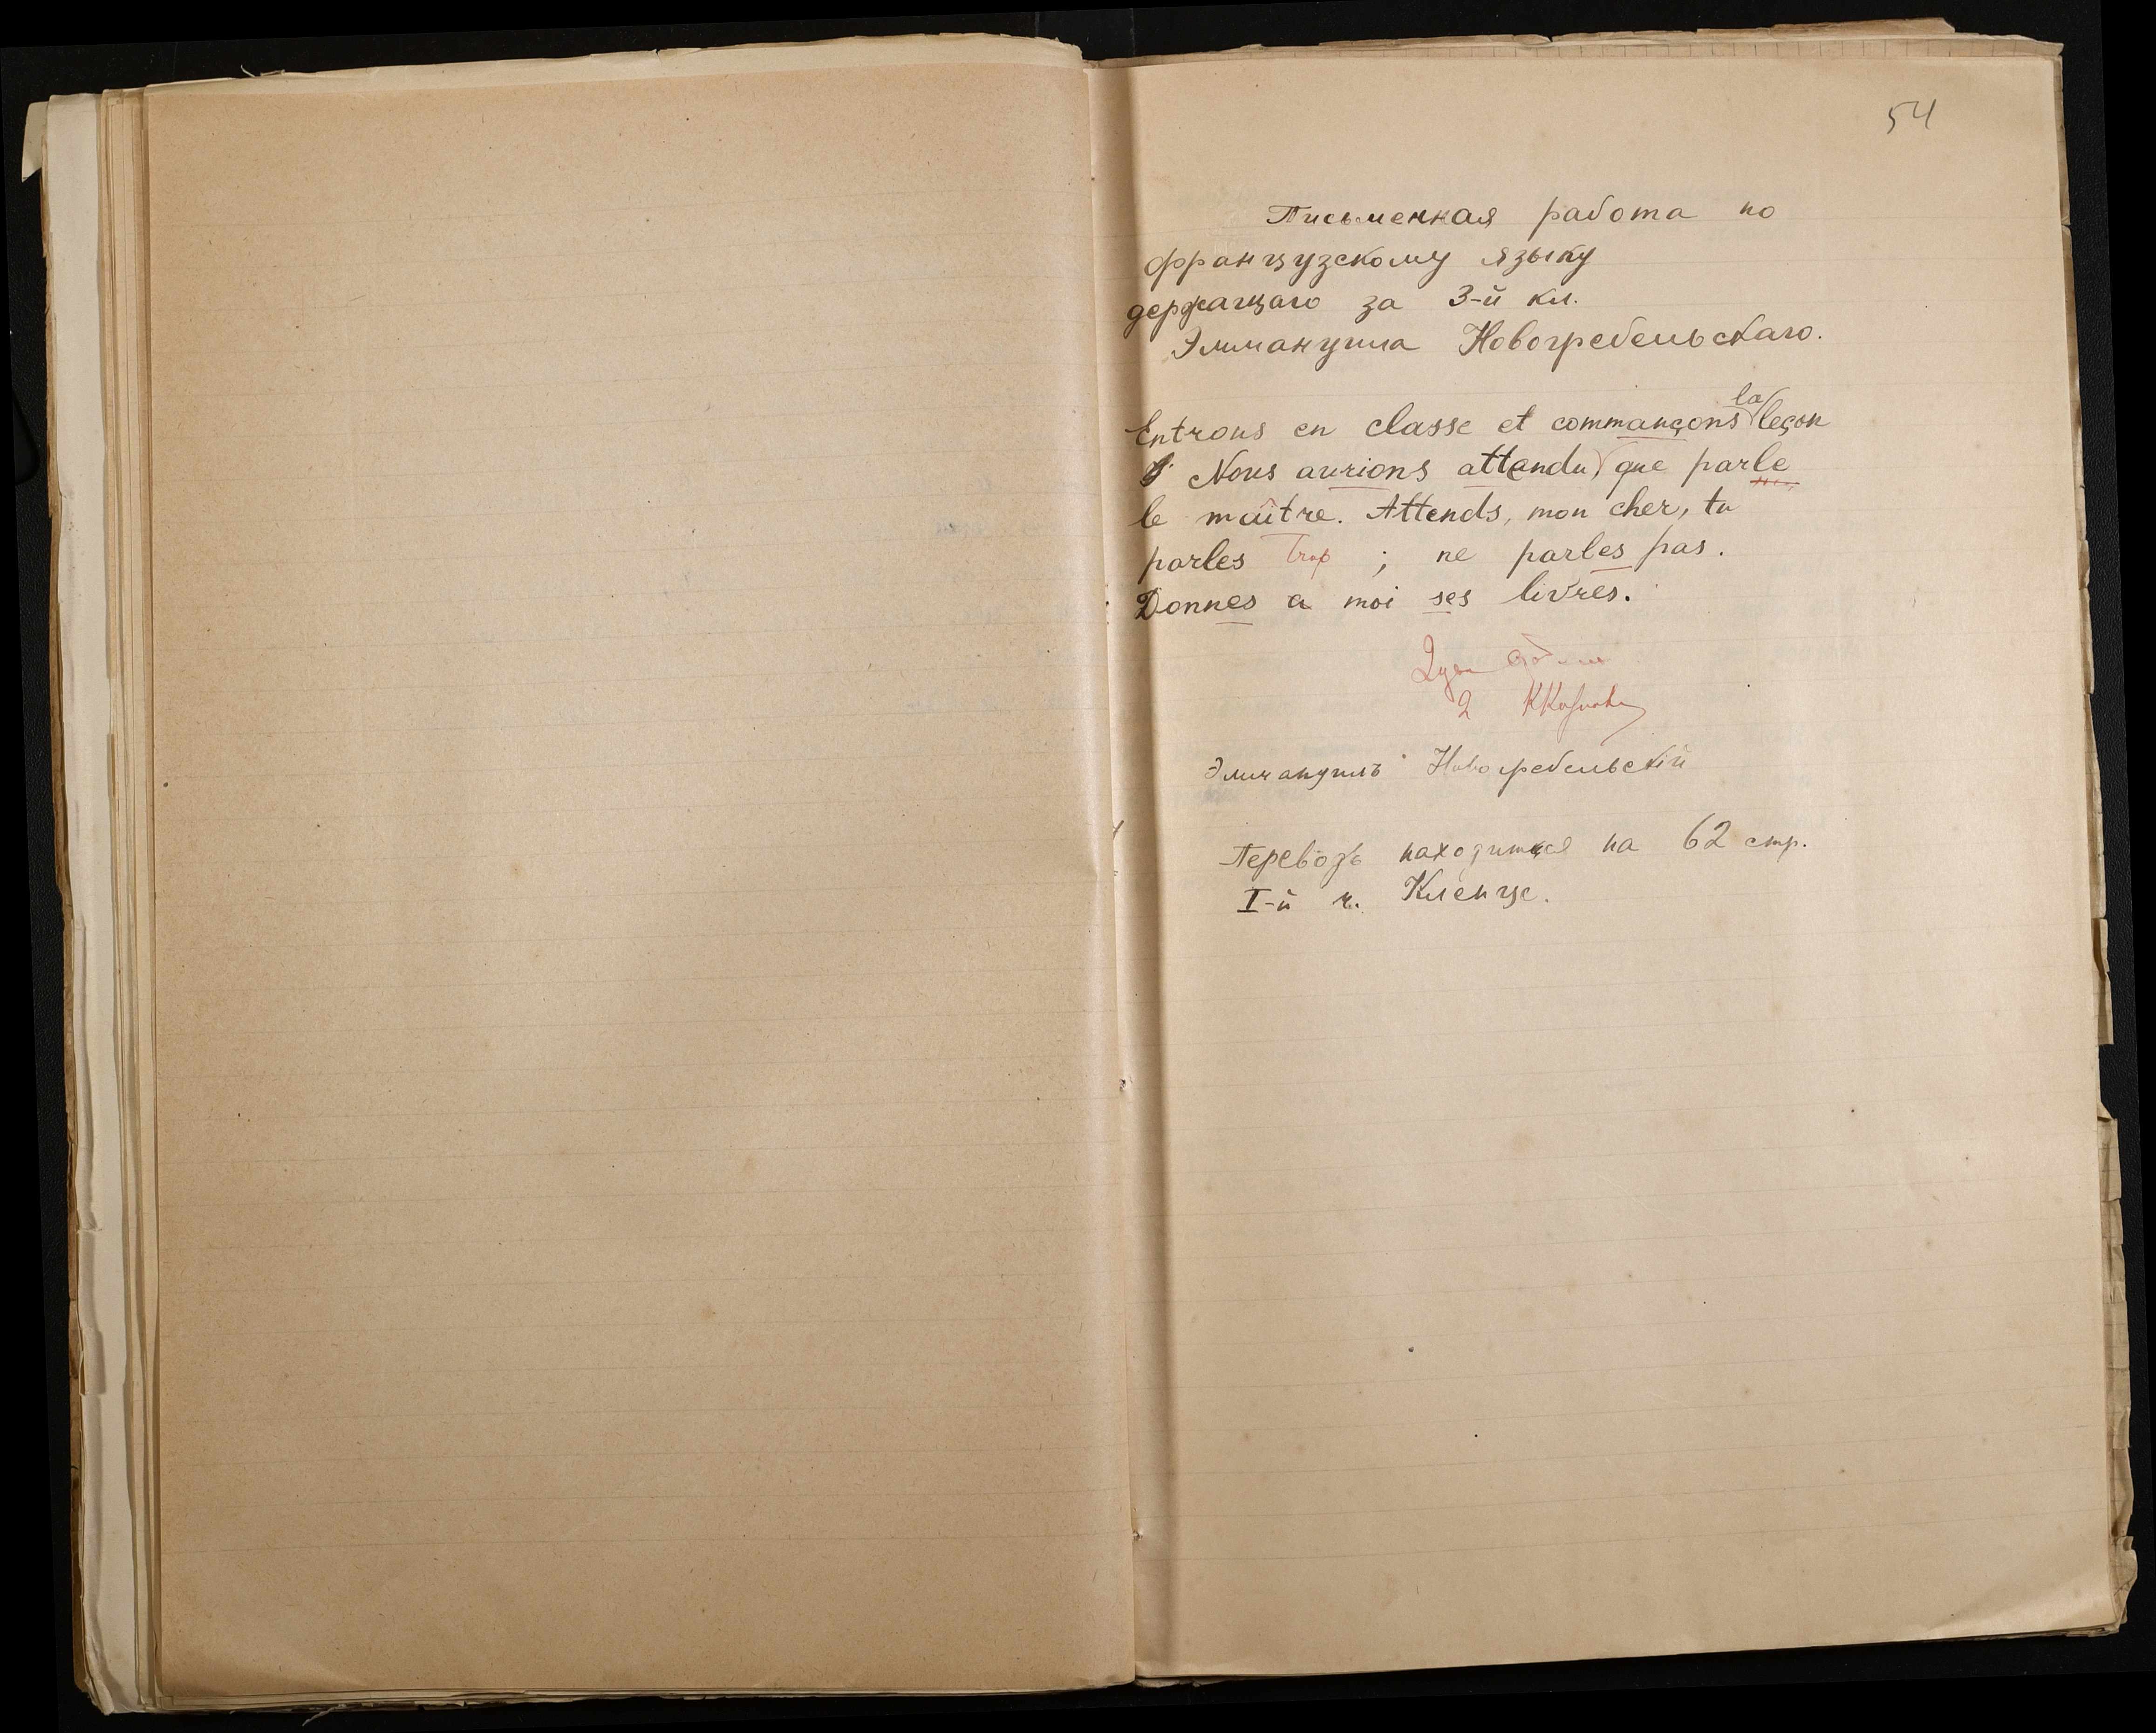 54
Письменная работа по
французскому языку
держащаго за 3-й кл.
Эммануила Новогребельскаго.
la
Entrons en classe et commançons leçon
Nous aurions attendu que parle
le maître. Attends, mon cher, tu
parles trop ; ne parles pas.
Donnes a moi ses livres.
2
Эммануилъ Новогребельскій
Переводъ находится на 62 стр.
I-й ч. Кленце.